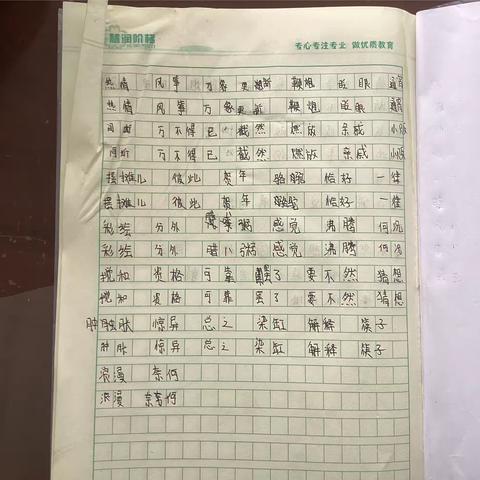 慧润阶梯
专心专注专业 做优质教育
热情 风筝 万象更新 鞭炮 眨眼 通宵
热情 风筝 万象更新 鞭炮 眨眼 通宵
间断 万不得已 截然 燃放 亲戚 小贩
间断 万不得已 截然 燃放 亲戚 小贩
摆摊儿 彼此 贺年 骆驼 恰好 一律
摆摊儿 彼此 贺年 骆驼 恰好 一律
彩绘 分外 腊八粥 感觉 沸腾 何况
彩绘 分外 腊八粥 感觉 沸腾 何况
搅和 资格 可靠 罢了 要不然 猜想
搅和 资格 可靠 罢了 要不然 猜想
肿胀 惊异 总之 染缸 解释 筷子
肿胀 惊异 总之 染缸 解释 筷子
浪漫 奈何
浪漫 奈何